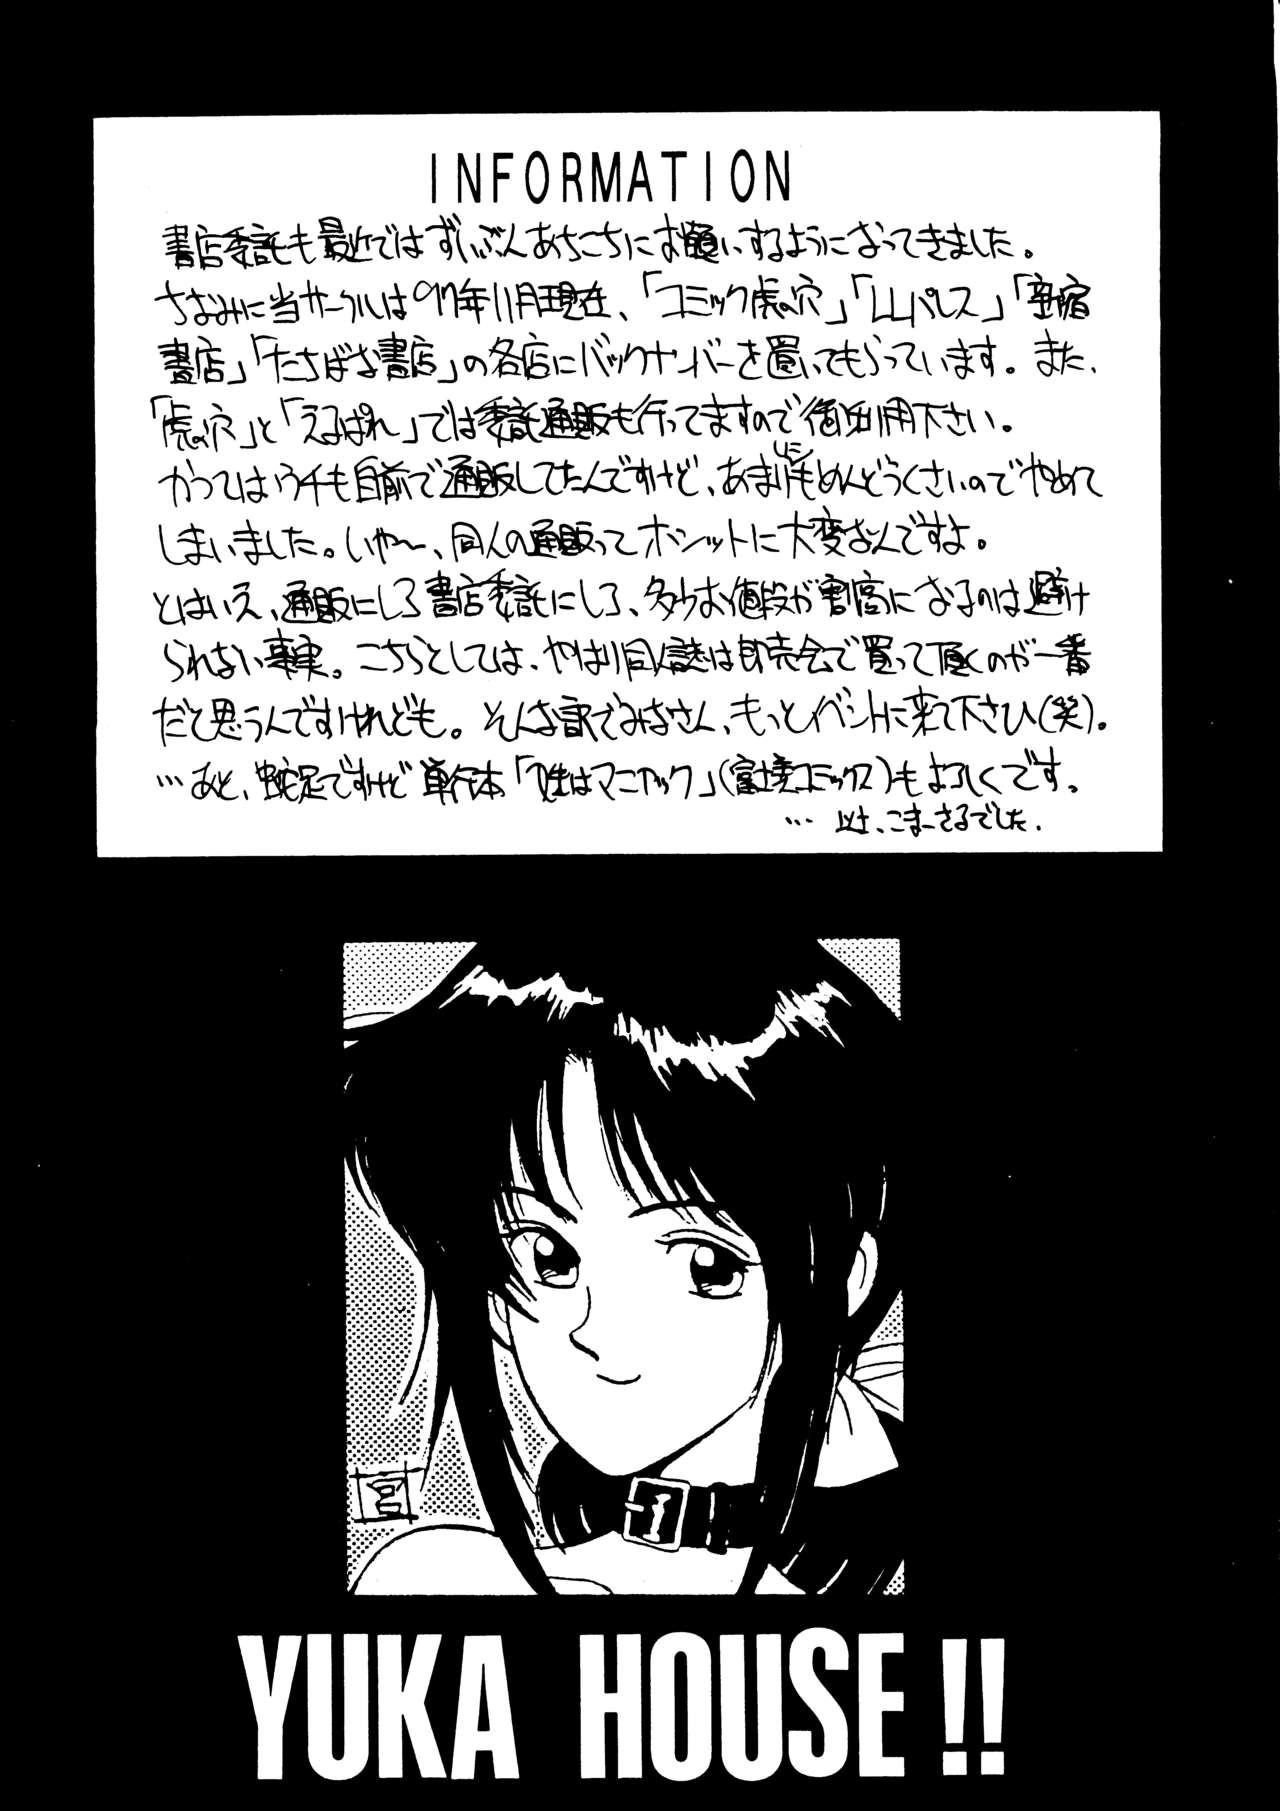 INFORMATION
書店委託も最近ではずいぶんあちこちにお願いするようになってきました。
ちなみに当サークルは97年11月現在、「コミック虎の穴」「LLパレス」「新宿
書店」「たちばな書店」の各店にバックナンバーを置いてもらっています。また、
「虎の穴」と「えるぱれ」では委託通販も行ってますので御利用下さい。
かつてはウチも自前で通販してたんですけど、あまりにもめんどうくさいのでやめて
しまいました。いや〜、同人の通販ってホンットに大変なんですよ。
とはいえ、通販にしろ書店委託にしろ、多少お値段が割高になるのは避け
られない事実。こちらとしては、やはり同人誌は即売会で買って頂くのが一番
だと思うんですけれども。そんな訳でみなさん、もっとイベントに来て下さひ(笑)。
…あと、蛇足ですけど単行本「はマニアック」(富士美コミックス)もよろしくです。
… 以上、こまーさるでした.
宮
YUKA HOUSE!!